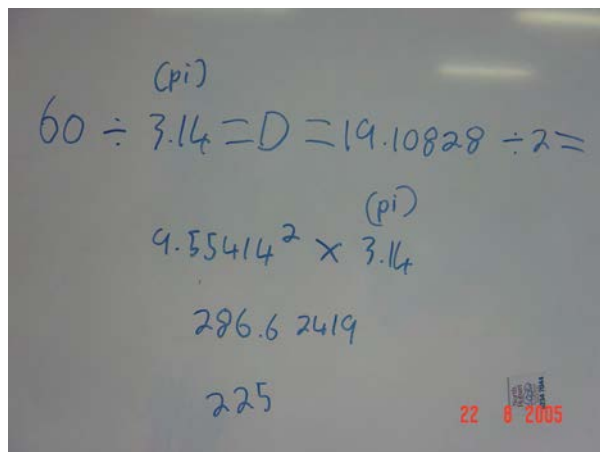 (pi)
60 ÷ 3.14 = D = 19.10828 ÷ 2 =
(pi)
9.55414² × 3.14
286.62419
225
22 8 2005